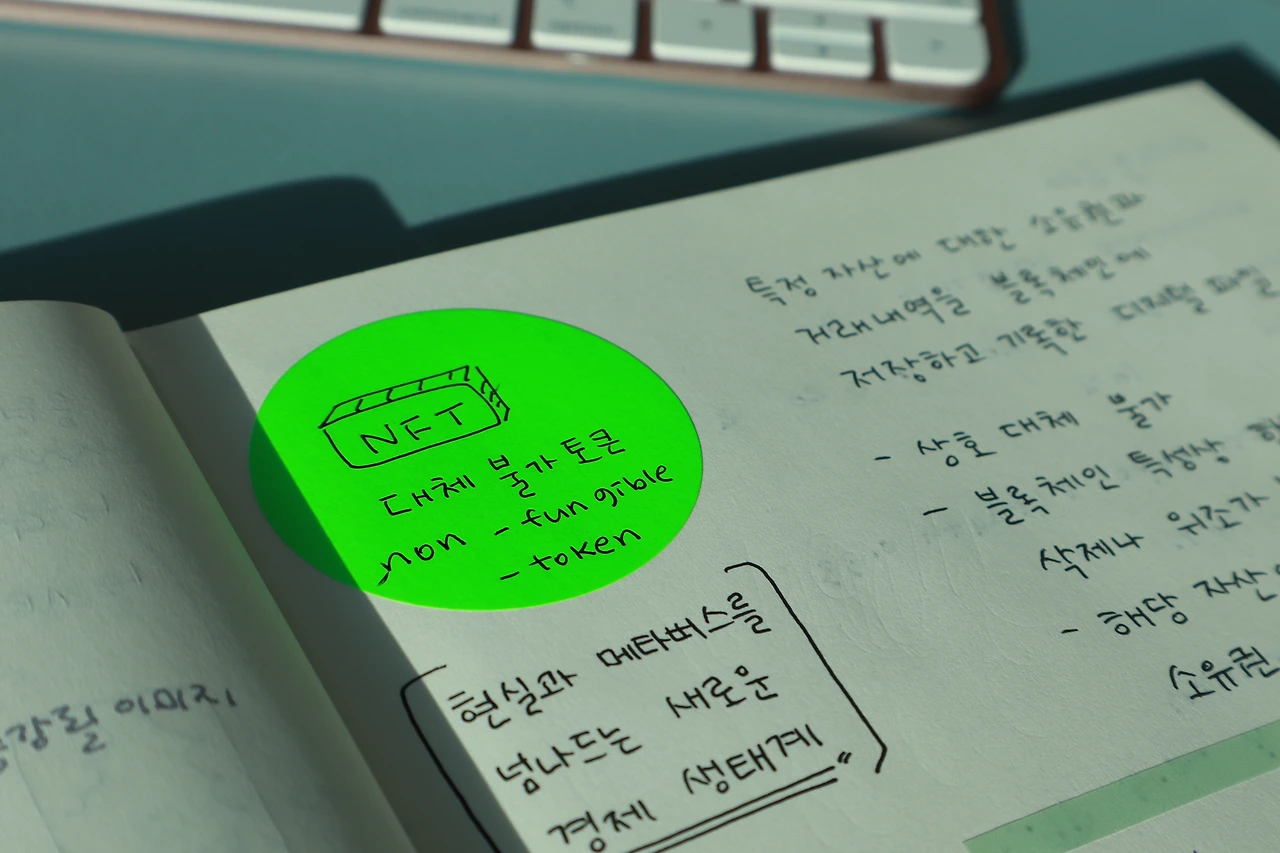 NFT
대체 불가 토큰
non - fungible
- token
현실과 메타버스를
넘나드는 새로운
경제 생태계"
특정 자산에 대한 소유권과
거래내역을 블록체인에
저장하고 기록한 디지털 파일
- 상호 대체 불가
- 블록체인 특성상
삭제나 위조가
- 해당 자산
소유권
이미지